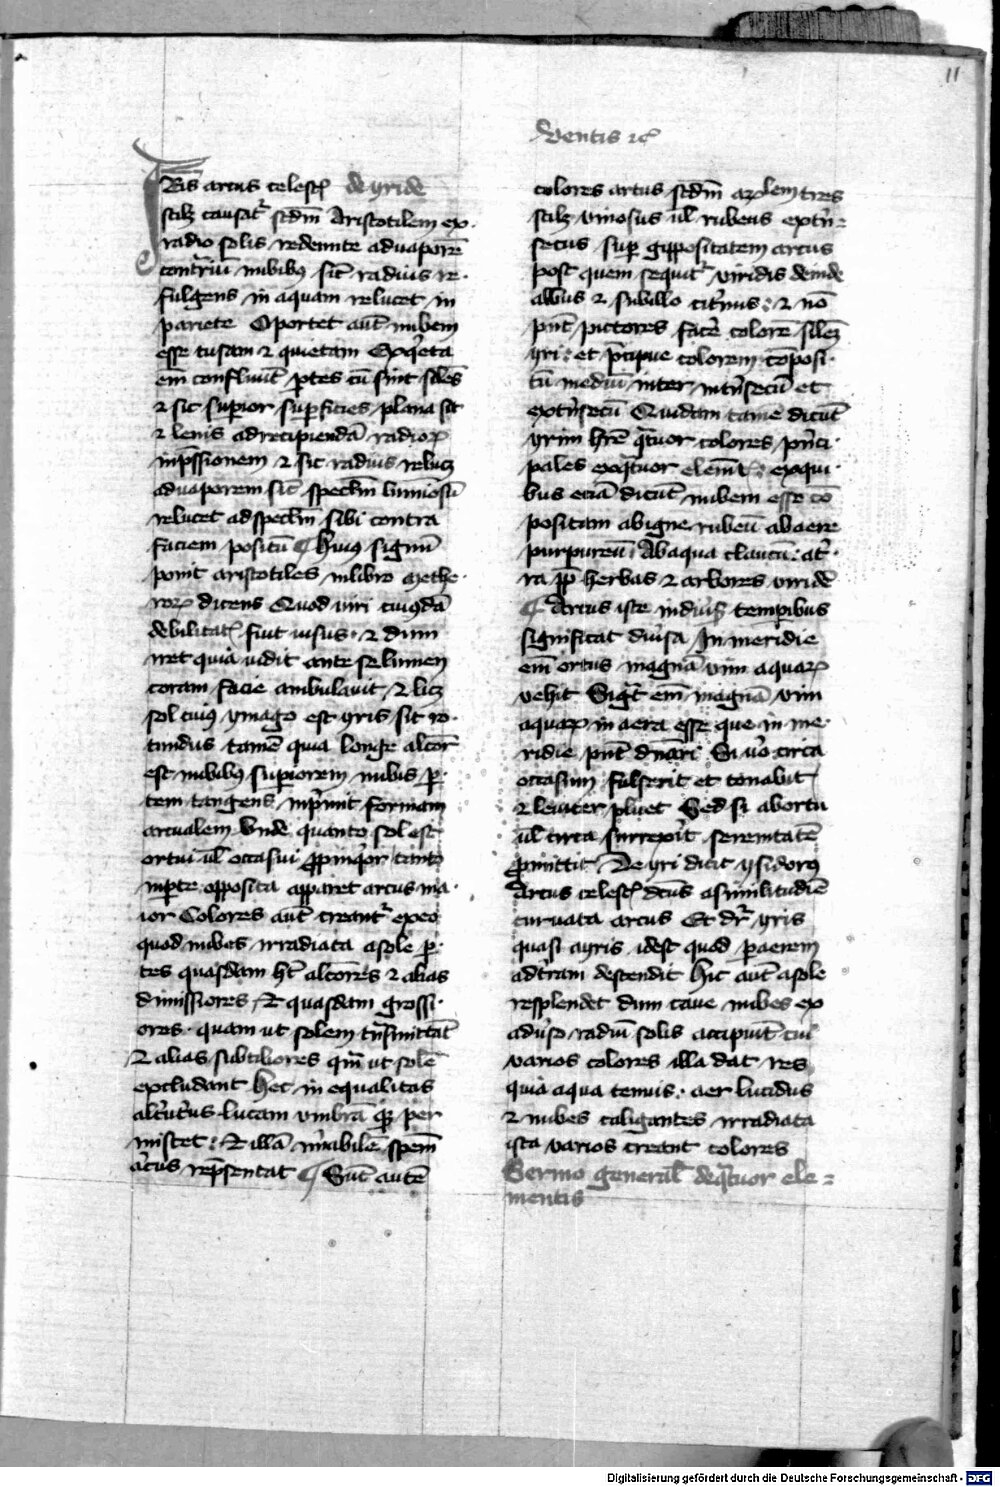 11
Ventis etc̄
IRis arcus celest̄ de yride
scilz causat᷑ scdm̄ Aristotilem ex
radio solis redeunte ad uaporē
contrariū nubibꝰ sic̄ radius re-
fulgens in aquam relucet in
pariete Oportet aut̄ nubem
esse tusam et quietam Ex q̄eta
em̄ confluūt ptes cū sint siles
et sic superior superficies plana sit
et lenis ad recipiendā radioꝝ
inp̄ssionem et sic radius relucz
ad uaporem sic̄ specl̄m luminosū
relucet ad specl̄m sibi contra
faciem positū ¶ Huiꝰ signū
ponit aristotiles in libro methe-
roꝝ dicens Quod uiri cuiꝰdā
debilitat᷑ fiut uisus et dum
iret quia uidit ante se lumen
coram facie ambulauit et licz
sol cuiꝰ ymago est yris sit ro-
tundus tamē quia longe alcior
est nubibꝰ superiorem nubis p-
tem tangens inp̄mit formam
arcualem Vnde quanto sol est
ortui ul̄ occasui ꝓpinq̄or tanto
in pte opposita apparet arcus ma-
ior Colores aut̄ creant᷑ ex eo
quod nubes irradiata a sole p-
tes quasdam ht̄ alciores et alias
dimissiores Et quasdam grossi-
ores quam ut solem tn̄smittāt
Et alias subtiliores qm̄ ut solē
excludant Hec in equalitas
alt᷑utrius lucam vmbrā qz per
miscet: Et illā mirabilē spem̄
arcus rep̄sentat ¶ Sūt autē
colores artus scdm̄ tres
scilz vinosus ul̄ rubeus extri=
secus super gippositatem arcus
post quem sequit᷑ viridis deinde
albus et subillo citrinus: et nō
pn̄t pictores facē colorē silez̄
yri: et p̄cipue colorem cōposi-
tū mediū inter intn̄secū et
extn̄secū Quidam tamē dicūt
yrim hr̄e q̄tuor colores pn̄ci-
pales ex q̄tuor elemēt᷑: ex qui-
bus eciā dicūt nubem esse cō
positam ab igne rubeū ab aere
purpureū Ab aqua glaucū: a t᷑-
ra pp̄ herbas et arbores viridē
¶ Arcus iste in diūs temporibus
significat diūsa In meridie
em̄ ortus magnā vim aquaꝝ
vehit Sigt̄ em̄ magnā vim
aquaꝝ in aera esse que in me-
ridie pn̄t Si uo circa
occasum fulserit et tonabit
et leuiter pluet Sed si ab ortu
ul̄ circa surrexit serenitatē
ꝓmittit De yri dicit ysidorꝰ
Arcus celest᷑ dc̄us a similitudīe
curuata arcus Et dr̄ yris
quasi ayris idest quod p aerem
ad t᷑ram descendit Hic aut̄ a sole
resplendet dum caue nubes ex
aduso radiū solis accipiūt cui
varios colores illa dat res
quia aqua tenuis aer lucidus
et nubes caligantes irradiata
ista varios creant colores
Sermo general̄ de q̄tuor ele=
mentis
Digitalisierung gefördert durch die Deutsche Forschungsgemeinschaft - DFG